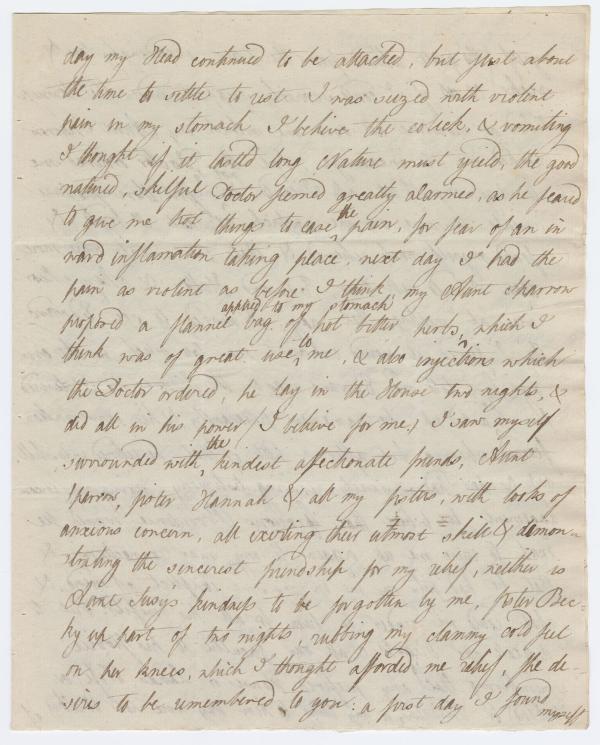 day my Head continued to be attacked, but just about
the time to settle to rest I was seized with violent
pain in my stomach I behieve the colick, & vomiting
I thought if it lasted long Nature must yield, the good
natured, skilful Doctor seemed greatly alarmed, as he feared
to give me hot things to ease the pain, for fear of an in
ward inflamation taking place. next day I had the
pain as violent as before I think my Aunt Sparrow
proposed a flannel bag applied to my stomach of hot bitter herbs, which I
think was of great use to me, & also injections which
the Doctor ordered, he lay in the House two nights, &
did all in his power (I believe for me.) I saw myself
surrounded with the kindest affectionate friends, Aunt
Sparrow, sister Hannah & all my sisters, with looks of
anxious concern, all exerting their utmost skill & demon-
strating the sincerest friendship for my relief, neither is
Aunt Susy's kindness to be forgotten by me, sister Bec-
ky up part of two nights, rubbing my clammy cold feet
on her knees, which I thought afforded me relief, she de-
sires to be remembered to you: a first day I found
myself